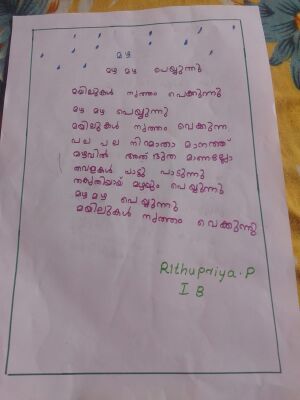 മഴ
മഴ മഴ പെയ്യുന്നു
മയിലുകൾ നൃത്തം വെക്കുന്നു
മഴ മഴ പെയ്യുന്നു
മയിലുകൾ നൃത്തം വെക്കുന്ന
പല പല നിറമാതാ മാനത്ത്
മഴവിൽ അത്ഭുത മാണല്ലോ
തവളകൾ പാട്ടു പാടുന്നു
മഴയും പെയ്യുന്നു
മഴ മഴ പെയ്യുന്നു
മയിലുകൾ നൃത്തം വെക്കുന്നു
Rithupriya.P
I B